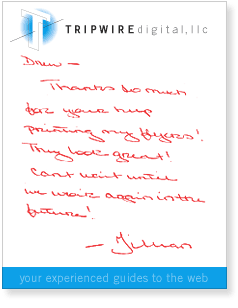 TRIPWIREdigital,llc
Drew —
Thanks so much
for your help
printing my flyers!
They look great!
Can't wait until
we work again in the
future!
— Jillian
your experienced guides to the web